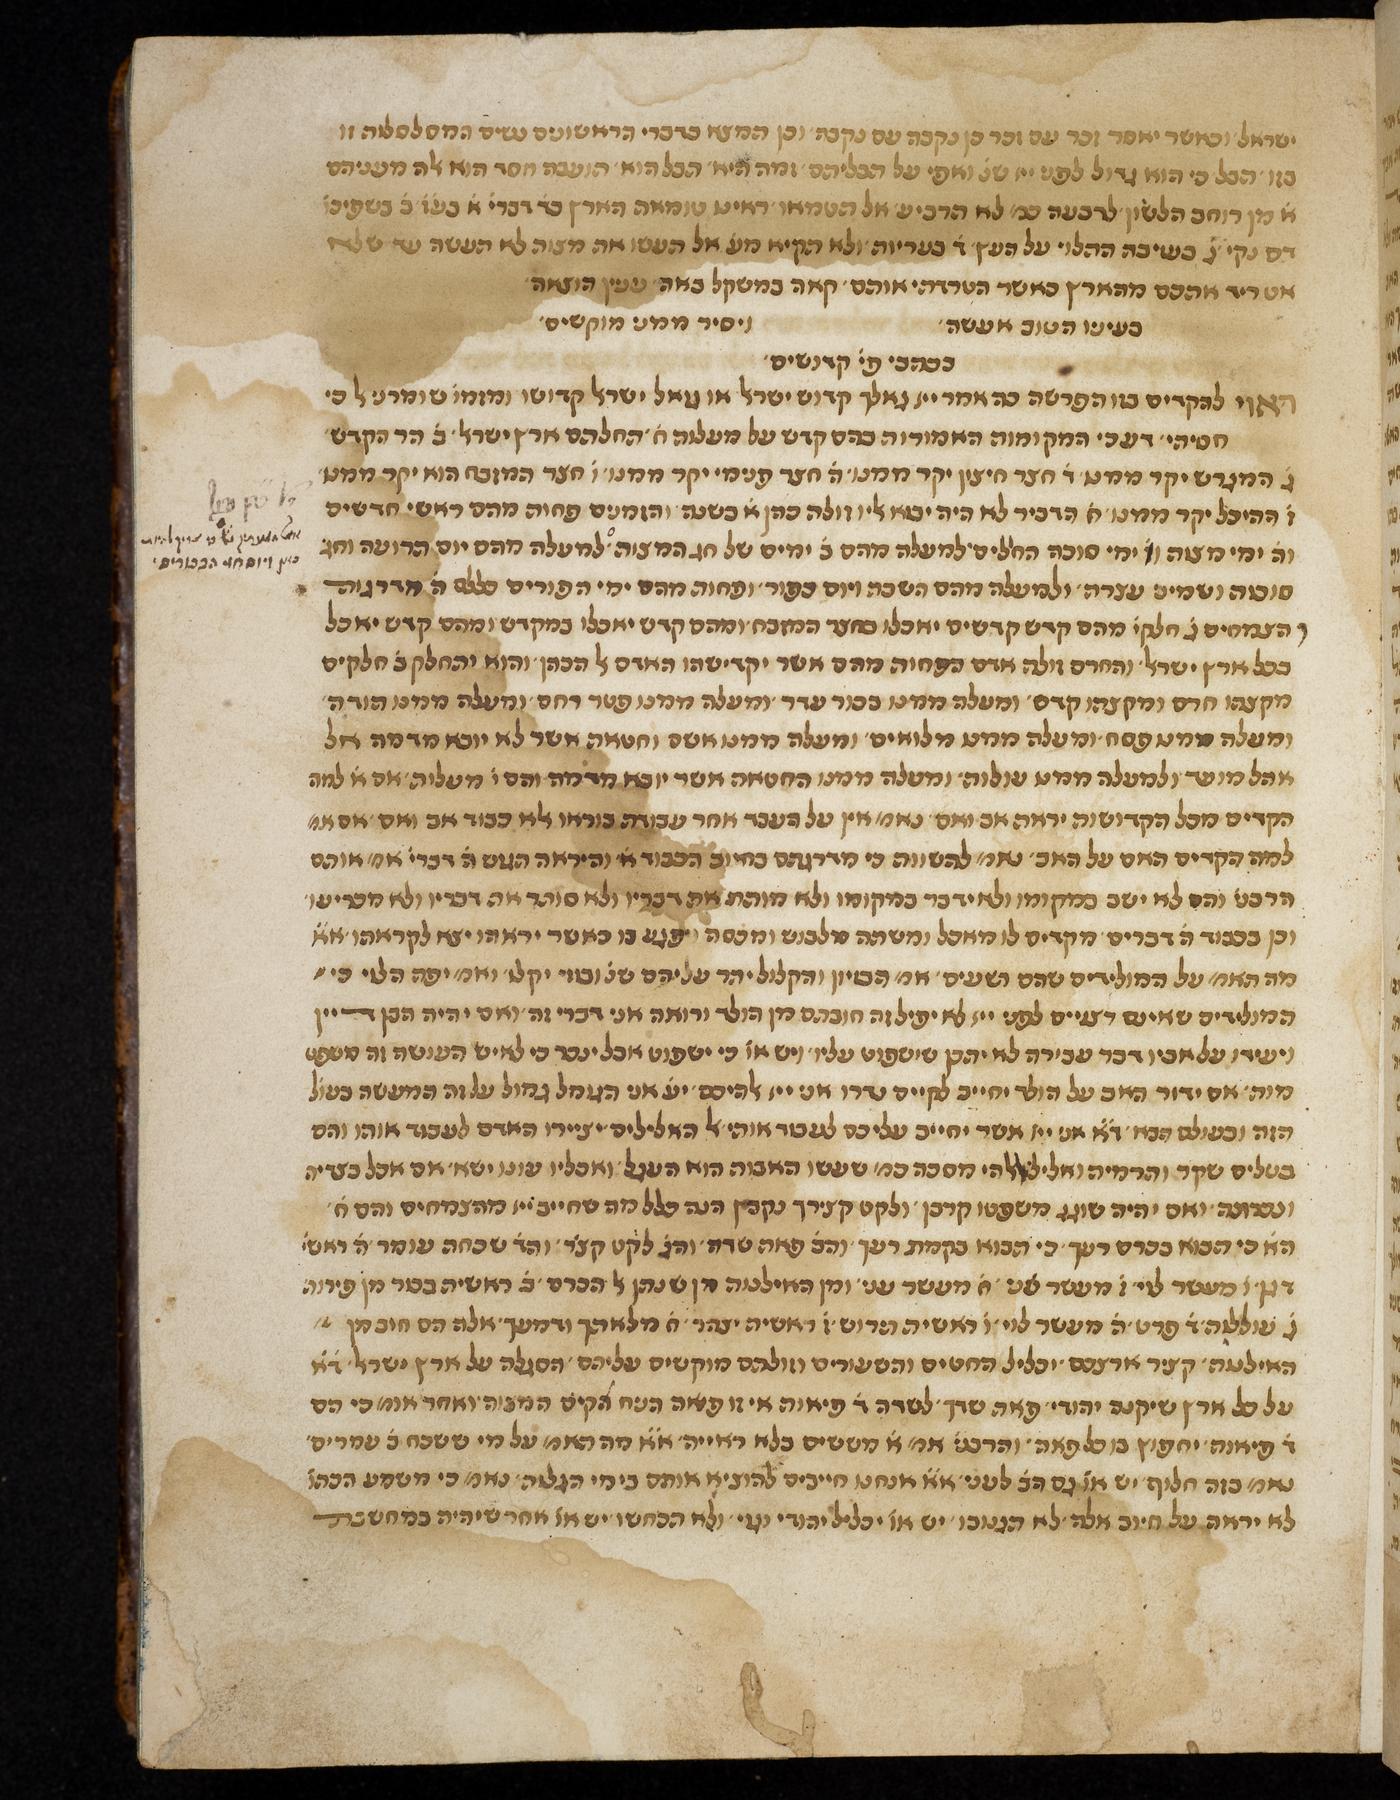 ישראל וכאשר יאסר זכר עם זכר כן נקבה עם נקבה וכן המצא בדברי הראשונים נשים המסלסלות זו
בזו הבל כי הוא גדול לפני ייי שנ ואפי על הבליהם זמה היא הבל הוא תועבה חסד הוא אלה מעניהם
א מן רוחב הלשון לרבעה כמ לא הרביע אל הטמאו ראינו טומאה הארץ בד דברי א בעו ב בשפיכו
דם נקי ג בשיבה ההלוי על העץ ד בעריות ולא תקיא מע אל העשו את מצוה לא העשה עד שלא
אטריד אתכם מהארץ כאשר הטרדתי אותם קאה במשקל באה ענין הוצאה
בעינו הטוב אעשה ויסיר ממנו מוקשים
ככתבי פי קדושים
ראוי להקדים בזו הפרשה כה אמר ייי גאלך קדוש ישראל או גואל ישראל קדושו ומזמו שומרני ל כי
חסיהי דע כי המקומות האמורות בהם קדש על מעלות ח התלהם ארץ ישראל ב הר הקדש
ג המגרש יקר ממנו ד חצר חיצון יקר ממנו ה חצר פנימי יקר ממנו ו חצר המזבח הוא יקר ממנו
ז ההיכל יקר ממנו ח הדביר לא היה יבוא אליו זולה כהן א בשנה והזמנים פחות מהם ראשי חדשים
וה ימי מצות וו ימי סוכה החלים למעלה מהם ב ימים של חג המצות למעלה מהם יום הרועה וחג
סוכות ושמיני עצרת ולמעלה מהם השבת ויום כפור ופחות מהם ימי הפורים כללם ה מדרגות
הצמחים ג חלקי מהם קדש קדשים יאכלו בחצר המזבח ומהם קדש יאכלו במקדש ומהם קדש יאכל
בכל ארץ ישראל והחרם זולה אדם בפחות מהם אשר יקדישהו האדם ל הכהן והוא יתחלק ב חלקים
מקצתו חרם ומקצתו קדם ומעלה ממנו בכור עדר ומעלה ממנו פטר רחם ומעלה ממנו תודה
ומעלה ממנו פסח ומעלה ממנו מלואים ומעלה ממנו אשם וחטאת אשר לא יובא מדמה אל
אהל מועד ולמעלה ממנו עולות ומעלה ממנו החטאת אשר יובא מדמה והם ו מעלות אם א למה
הקדים מכל הקדושות יראת אב ואם נאמ אין על העבד אחר עבודת בוראו אלא כבוד אב ואם אם אמ
למה הקדים האם על האב נאמ להשוות כי מדרגתם בחיוב הכבוד א והיראה הגש ה דברי אמ אותם
הרבנ והם לא ישב במקומו ולא ידבר במקומו ולא מותת את דבריו ולא סותר את דבריו ולא מכריעו
וכן בכבוד ה דברים מקדים לו מאכל ומשתה מלבוש ומכסה ויפגע בו כאשר יראהו יצא לקראתו אא
מה האמ על המולידים שהם רשעים אמ הבזיון והקלול יהר עליהם שנ ובוזי יקלו ואמ יפה הלוי כי
המולידים שאינם רצויים לפני ייי לא יפיל זה חובתם מן הולד ורואה אני דברי זה ואם יהיה הבן דיין
ויעידו על אביו דבר עבירה לא יתכן שישפוט עליו ויש או כי ישפוט אבל ינכר כי לאיש העושה זה משפט
מות אם ידור האב על הולד יחייב לקיים נדרו אני ייי אלהיכם יענ אני הגומל גמול על זה המעשה בעול
הזה ובעולם הבא דא אני ייי אשר יחייב עליכם לעבוד אותי אל האלילים יציירו האדם לעבוד אותו והם
בטלים שקר והרמיה ואלילי אלהי מסכה כמ שעשו האבות הוא העגל ואכליו עונו ישא אם אכל בצדיה
ונכונה ואם יהיה שוגג משפטו קרבן ולקט קצירך נקבץ הנה כלל מה שחייב ייי מהצמחים והם ח
הא כי תבוא בכרם רעך כי תבוא בקמת רעך והב פאת שדה והג לקט קציר והד שכחת עומר ה ראשי
דגן ו מעשר לוי ז מעשר שני ח מעשר עני ומן האילנות מן שנתן ל הכרם ב ראשית בכור מן פירות
ג עוללות ד פרט ה מעשר לוי ו ראשית תירוש ז ראשית יצהר ח מלאתך ודמעך אלה הם חוב מן
האילנות קציר ארצכם יכליל החטים והשעורים וזולתם מוקשים עליהם הסגלה על ארץ ישראל דא
על כל ארץ שיקנה יהודי פאת שדך לשדה ד פיאות אי זו פאה הניח הקים המצוה ואחר אומ כי הם
ד פיאות יחפוץ בו כל פאה והרבנ אמ א מששים בלא ראייה אא מה האמ על מי ששכח ב עמרים
נאמ בזה חלוף יש או גם הב לעני אא אנחנו חייבים להוציא אותם בימי הגלות נאמ כי משמע הכתו
לא יראה על חיוב אלה לא תגנובו יש או יכליל יהודי וגוי ולא תכחשו יש או אחר שיהיה במחשבת